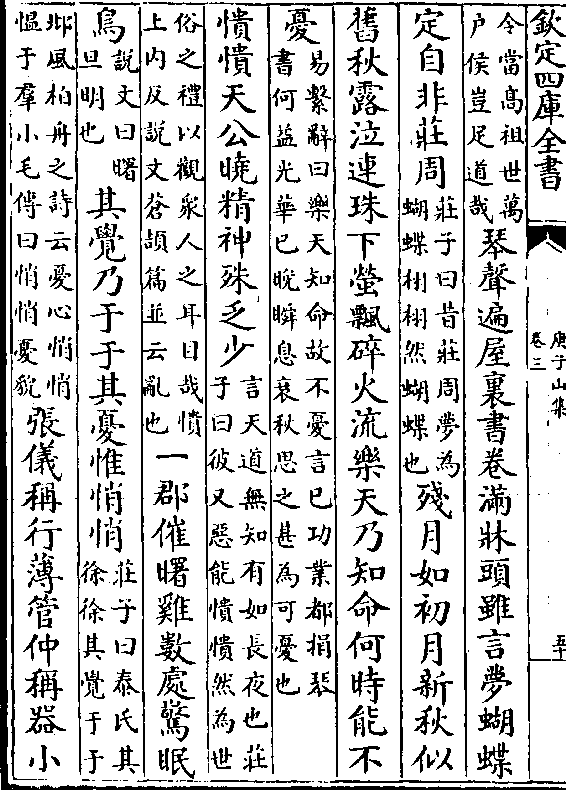 欽定四庫全書
庾子山集
卷三
五十
令當高祖世萬
户侯豈足道哉
琴聲遍屋裏書卷滿牀頭雖言夢蝴蝶
定自非莊周
莊子曰昔莊周夢為
蝴蝶栩栩然蝴蝶也
殘月如初月新秋似
舊秋露泣連珠下螢飄碎火流樂天乃知命何時能不
憂
易繫辭曰樂天知命故不憂言已功業都捐琴
書何益光華已晚瞬息衰秋思之甚為可憂也
憒憒天公曉精神殊乏少
言天道無知有如長夜也莊
子曰彼又惡能憒憒然為世
俗之禮以觀衆人之耳目哉憒
上内反説文蒼頡篇並云亂也
一郡催曙雞數處驚眠
鳥
説文曰曙
旦明也
其覺乃于于其憂惟悄悄
莊子曰泰氏其
徐徐其覺于于
邶風柏舟之詩云憂心悄悄
愠于羣小毛傳曰悄悄憂貌
張儀稱行薄管仲稱器小